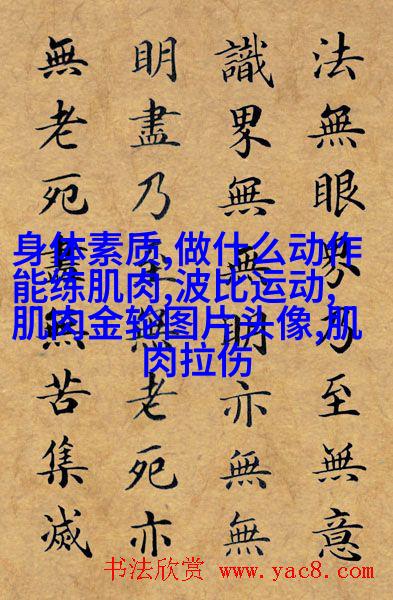 法無眼界乃至無意
識界無無明亦無無
明盡乃至無老死亦
無老死盡無苦集滅
身体素质,做什么动作
能练肌肉,波比运动,
肌肉金轮图片头像,肌
肉拉伤
书法欣赏 www.yac8.com